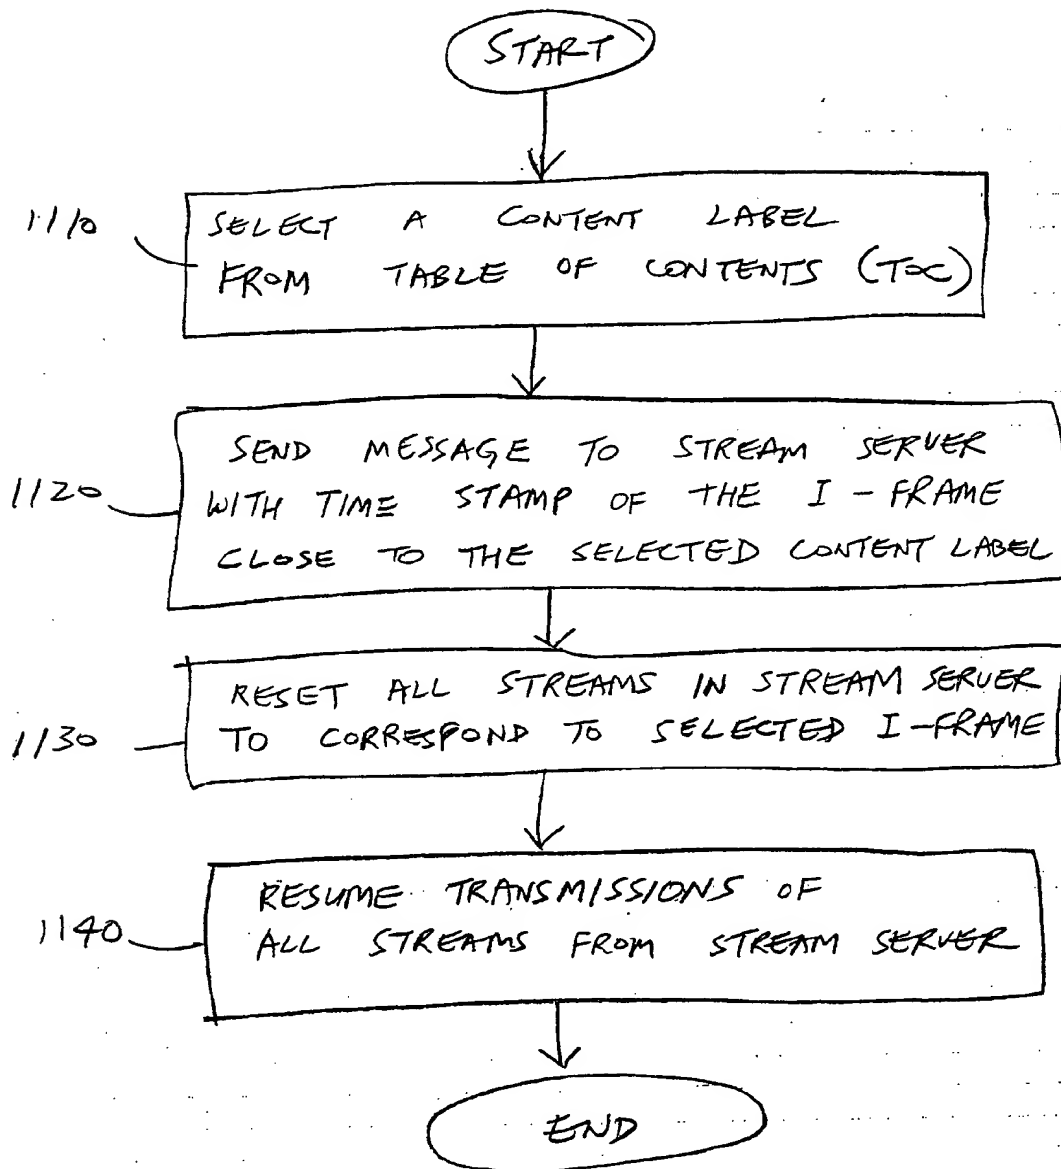 START
1110
SELECT A CONTENT LABEL
FROM TABLE OF CONTENTS (TOC)
1120
SEND MESSAGE TO STREAM SERVER
WITH TIME STAMP OF THE I-FRAME
CLOSE TO THE SELECTED CONTENT LABEL
1130
RESET ALL STREAMS IN STREAM SERVER
TO CORRESPOND TO SELECTED I-FRAME
1140
RESUME TRANSMISSIONS OF
ALL STREAMS FROM STREAM SERVER
END